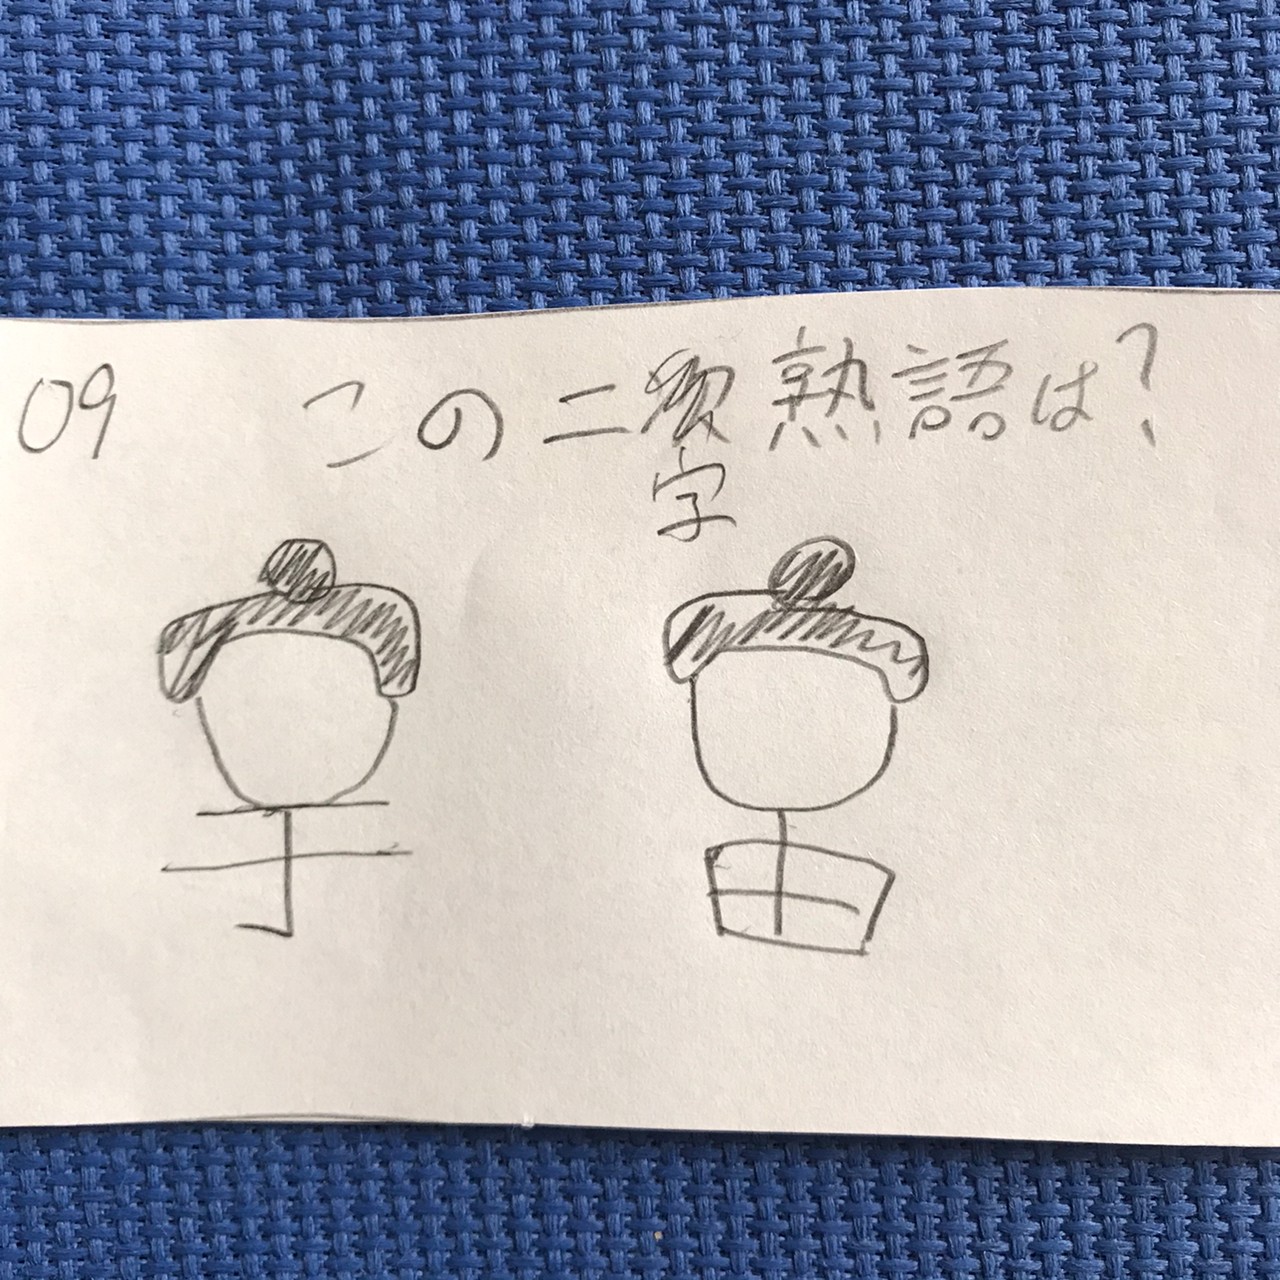 09 この二字熟語は?